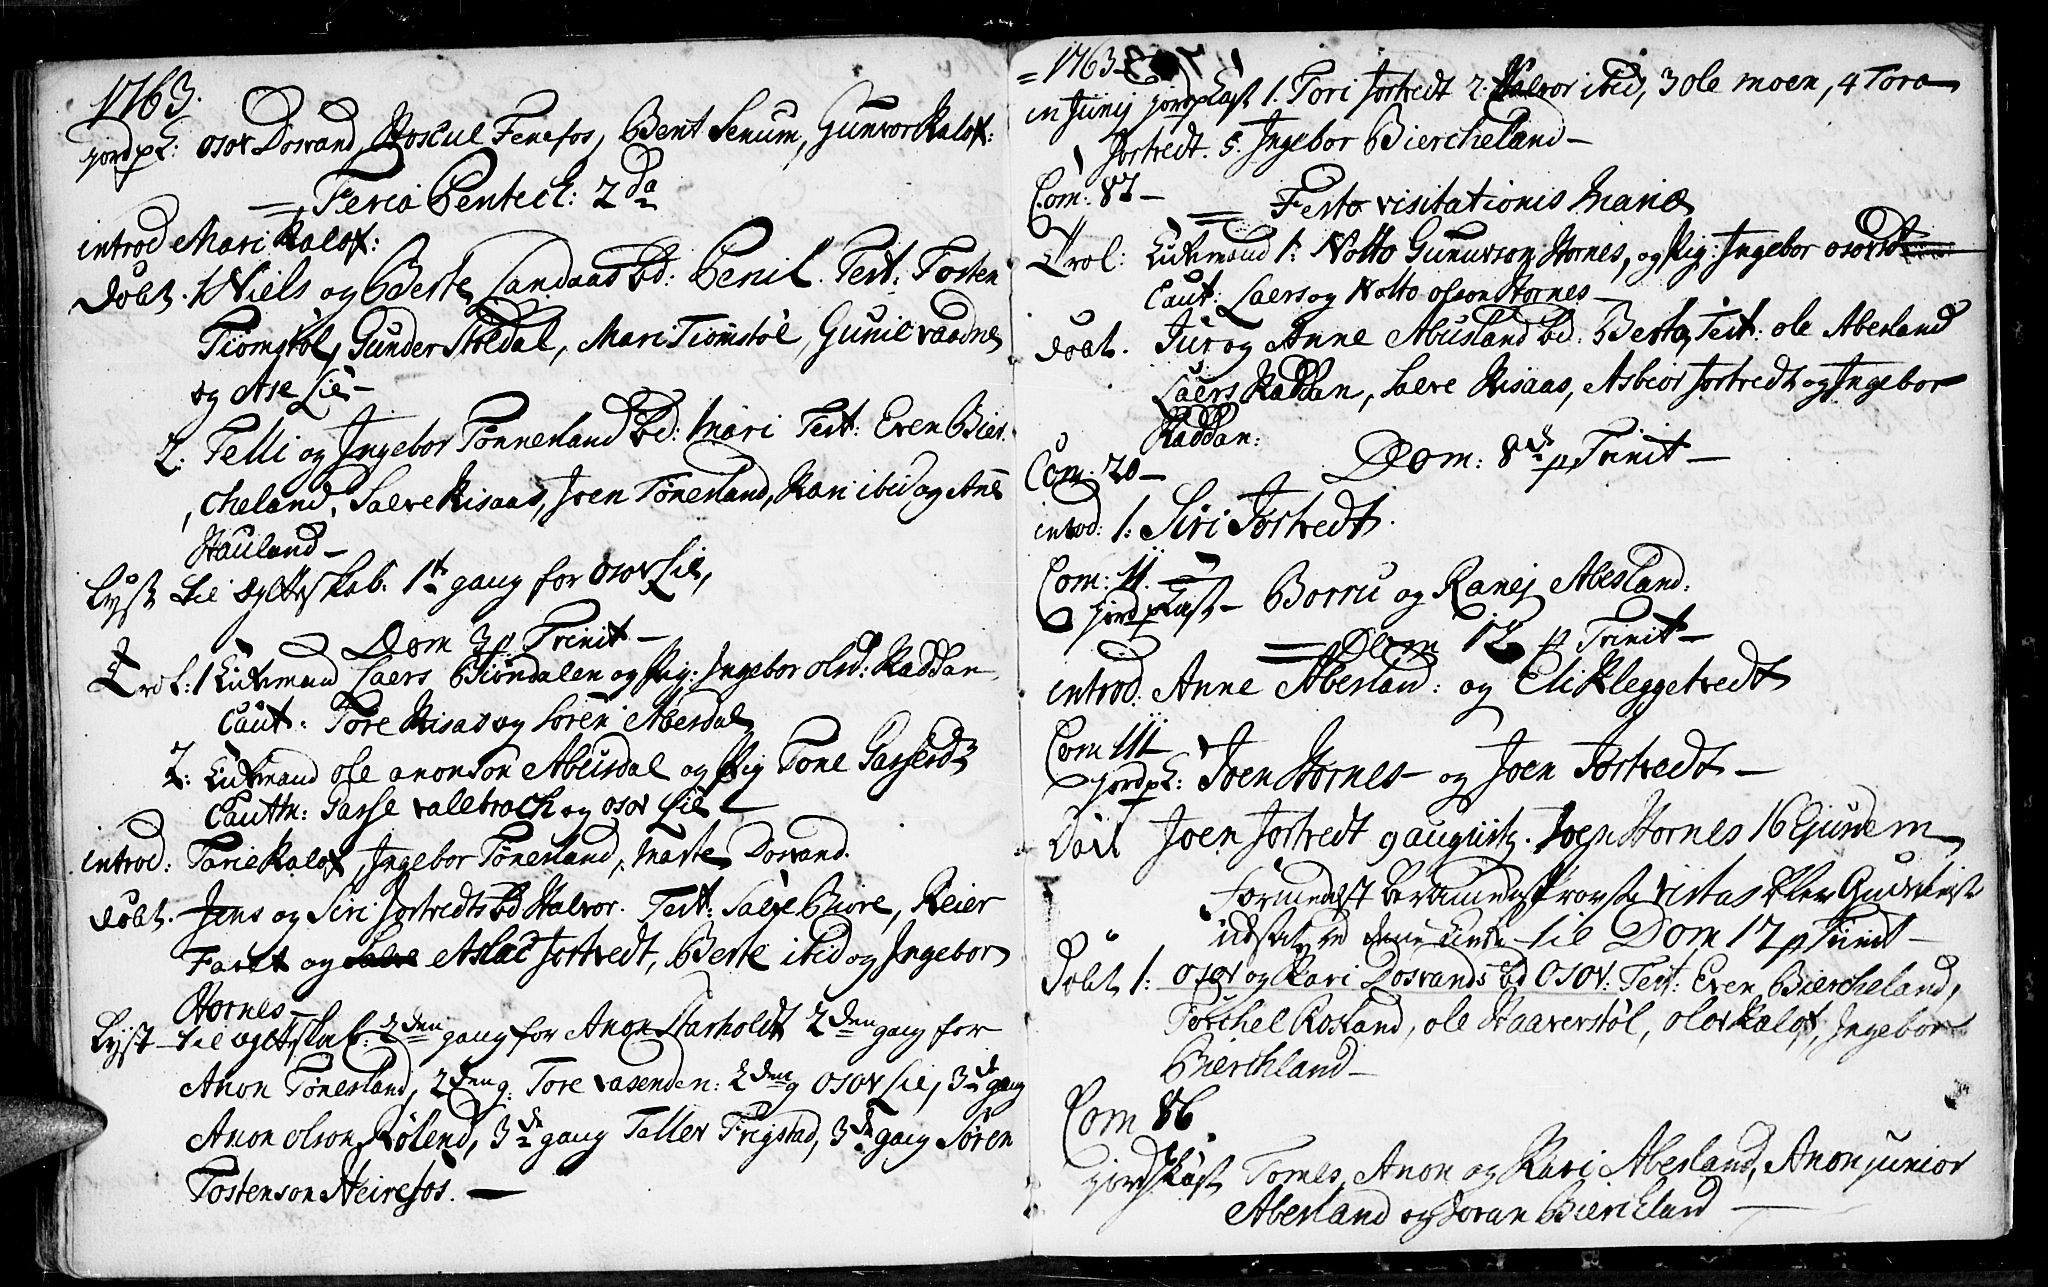 1763.
jordpk: Osov Dosvand, Roskul Fenefos, Bent Senum, Gunvor Kaløx:
= Feria Pentech: 2da
introd Mari Kaløx:
Døbt. 1 Niels og Berte Landaas bd: Penil. Test. Tosten
Tiomstøl, Gunder Aðedal, Mari Tiomstøl, Gunil vaadne
og Ase Lie –
2. Telli og Ingebor Tønnesland bd: Mari Test: Even Bier-
cheland, Salve Risaas, Joen Tønesland, Kari ibid og Ane
Hauland –
Lyst til ægtteskab. 1te gang for Osov Lie,
Dom 3 p Trinit –
Trol: 1 Lutmand Laers Biøndalen og Pig: Ingebor olsd: Raddan
Caut: Tore Risas og Søren Abesdal
2: Lutmand ole anonson Abusdal og Pig Tone
Cautn: Tarse vallebroch og osov Lie –
introd: Tarie Kaløx, Ingebor Tønesland, Marte Dosvand.
Døbt. Jens og Siri Jortvedts bd Halvor. Test: Salve Biore, Reier
og Aslac Jortvedt, Berte ibid og Ingebor
Hornes –
Lyst – til ægttskab: 2den gang for Anon Harholdt 2den gang for
Anon Tønesland, 2den g: Tore vasenden: 2den g Osov Lie, 3de gang
Anon olson Røsend, 3de gang Tellev Frigstad, 3de gang Søren
Tostenson Heirefos. –
= 1763
in Junij jordpkast 1. Tori Jortvedt 2. Halvor ibid, 3 ole moen, 4 Tora
Jortvedt. 5. Ingebor Biercheland –
Com: 87 –
= Festo visitationis Mariæ
Trol: Lutmand 1: Notto Gunuvson Hornes, og Pig: Ingebor
Caut: Laers og Notto olson Hornes –
Døbt. Jur og Anne Abusland bd: Berta, Test: ole Abesland
Laers Raddan, Salve Risaas, Asbiør Jortvedt og Ingebor
Raddan:
Com: 20 – Dom: 8de p Trinit –
introd: 1: Siri Jortvedt.
Com: 11. –
jordpkast – Borru og Ranej Abesland:
= Dom 12 p Trinit –
introd. Anne Abesland: og Eli Kleggetvedt
Com 111
jordpk: Joen Hornes – og Joen Jortvedt –
Joen Jortvedt 9 augusti. Joen Hornes 16
Formedelst Provste
udsat til Dom 17 p Trinit –
Døbt 1: Osov og Kari Dosvands bd Osov: Test: Even Biercheland,
Torchel Rosland, ole Haaverstøl, olov Kaløx, Ingebor
Bierchland –
Com 86
jordpkast Tomes, Anon og Kari Abesland, Anon junior
Abesland og Joran Biercheland –